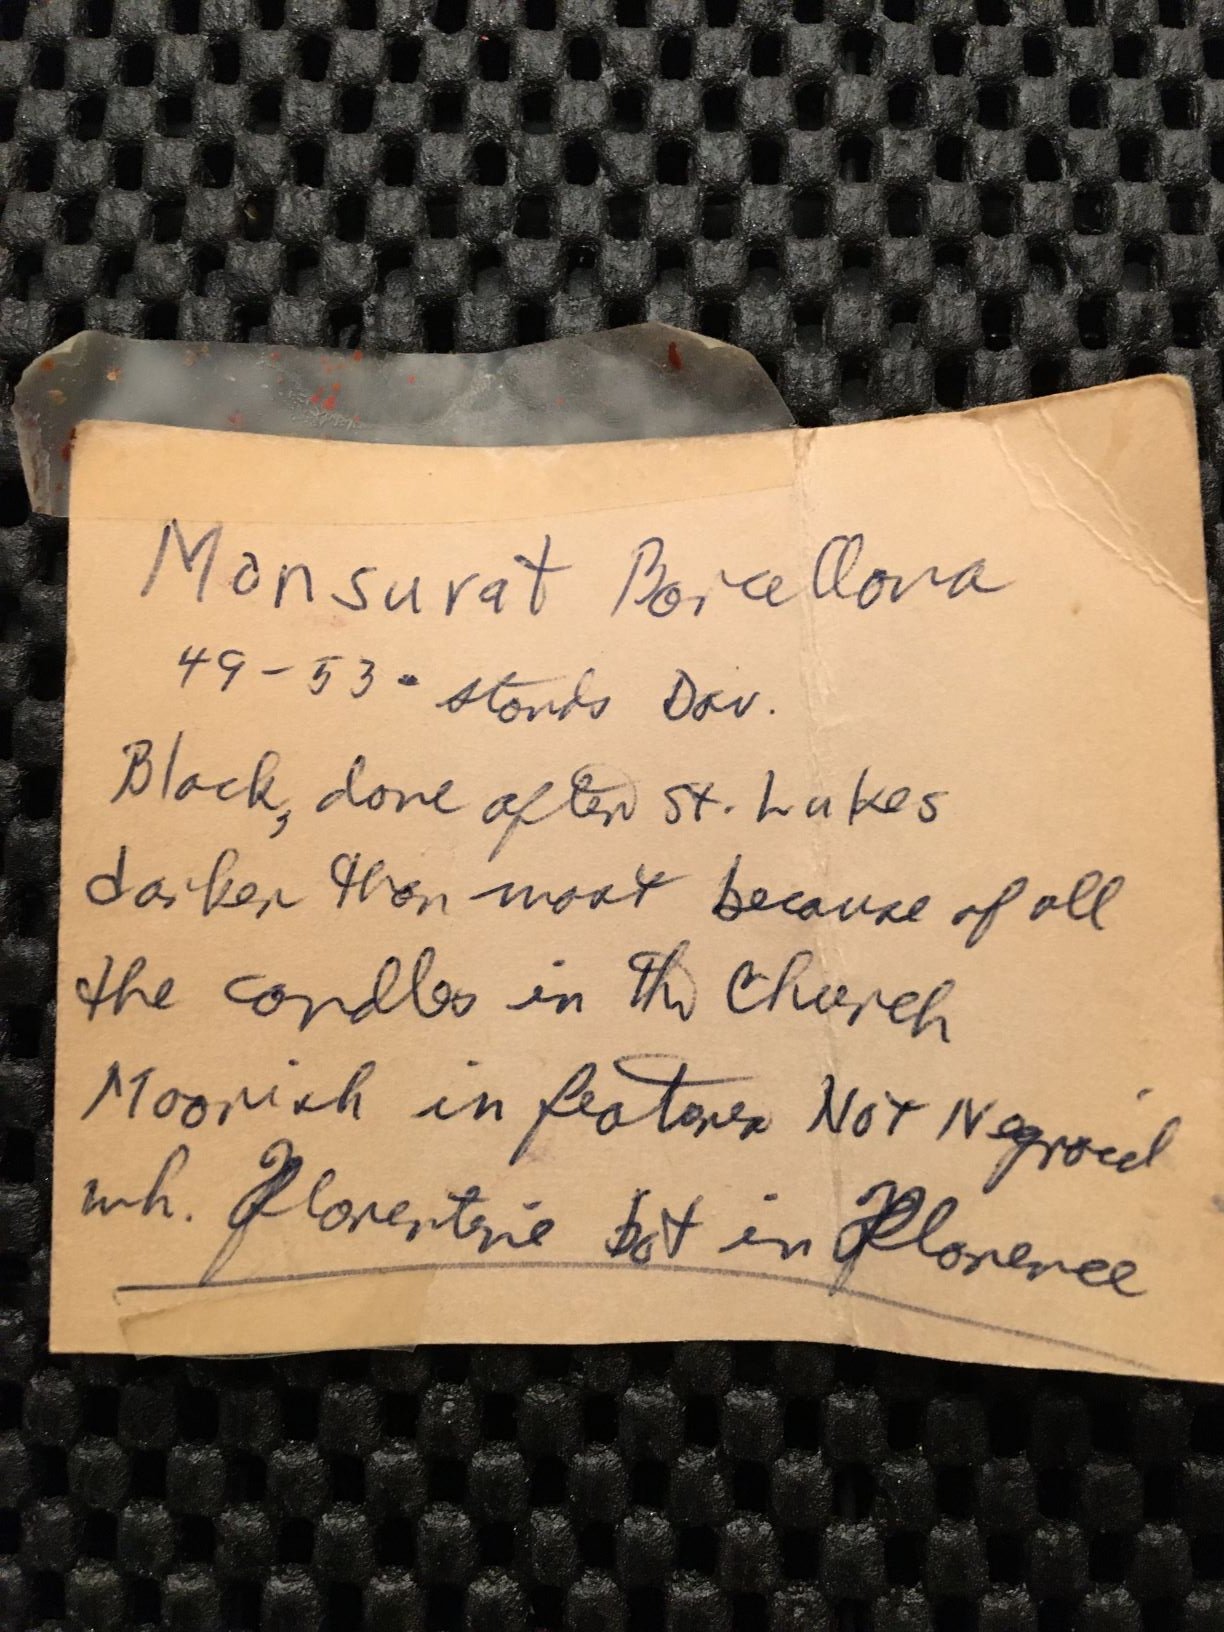 Monsurat Barcellona
49-53. stands Dav.
Black, done after St. Lukes
darker than most because of all
the candles in the Church
Moorish in features Not Negroid
wh. Florentine but in Florence